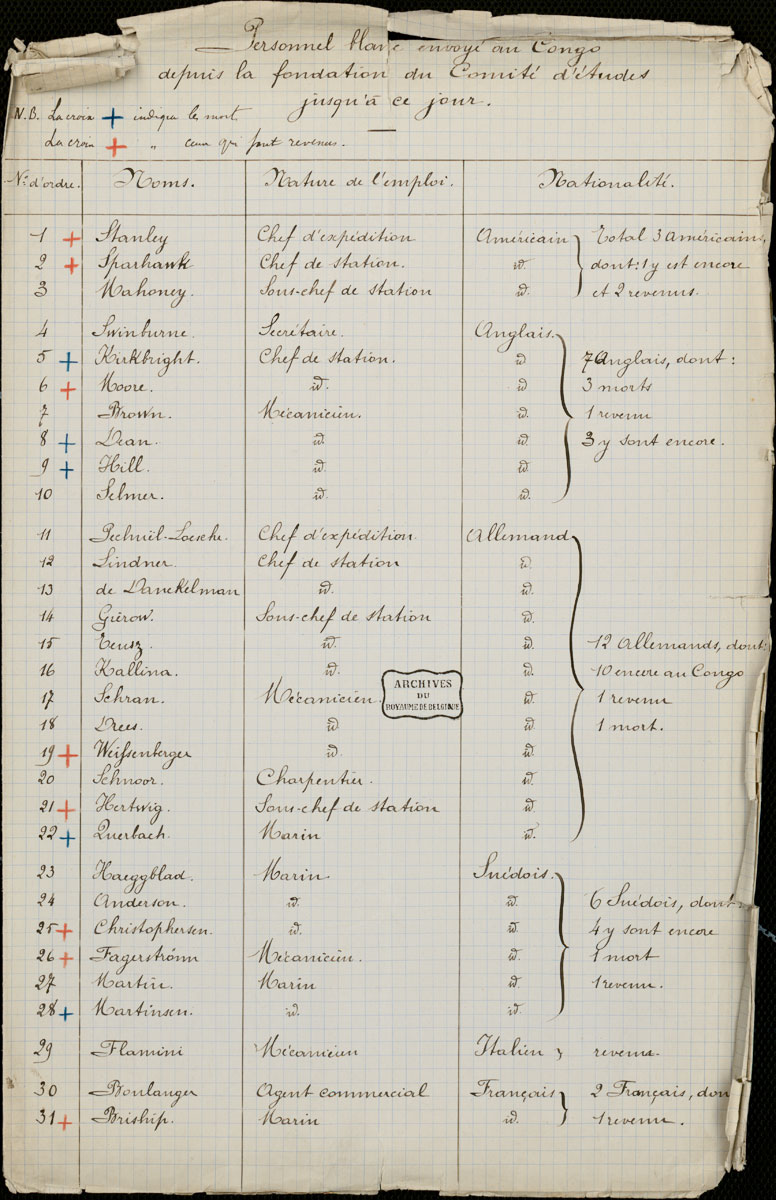 Personnel blanc envoyé au Congo
depuis la fondation du Comité d'études
jusqu'à ce jour.
N.B. La croix + indique les morts
La croix + " ceux qui sont revenus.
Nº d'ordre. Noms. Nature de l'emploi. Nationalité.
1 + Stanley Chef d'expédition Américain Total 3 Américains,
2 + Sparhawk Chef de station. id. dont: 1 y est encore
3 Mahoney. Sous-chef de station id. et 2 revenus.
4 Swinburne. Secrétaire. Anglais.
5 + Kirkbright. Chef de station. id 7 Anglais, dont:
6 + Moore. id. id 3 morts
7 Brown. Mécanicien. id. 1 revenu
8 + Dean. id. id. 3 y sont encore.
9 + Hill. id. id.
10 Selmer. id. id.
11 Pechuël-Loesche. Chef d'expédition Allemand
12 Lindner. Chef de station id.
13 de Danckelman id. id.
14 Guérow. Sous-chef de station id.
15 Teusz. id. id. 12 Allemands, dont:
16 Kallina. id. id. 10 encore au Congo
17 Schran. Mécanicien. id. 1 revenu
ARCHIVES
DU
ROYAUME DE BELGIQUE
18 Drees. id id. 1 mort.
19 + Weissenberger id. id.
20 Schnoor. Charpentier. id.
21 + Hertwig. Sous-chef de station id.
22 + Querbach. Marin id.
23 Haeggblad. Marin. Suédois.
24 Anderson. id. id. 6 Suédois, dont
25 + Christophersen. id. id. 4 y sont encore
26 + Fagerström Mécanicien. id. 1 mort
27 Martin. Marin id. 1 revenu.
28 + Martinsen. id. id.
29 Flamini Mécanicien Italien revenu.
30 Boulanger Agent commercial Français 2 Français, don
31 + Briship. Marin id. 1 revenu.